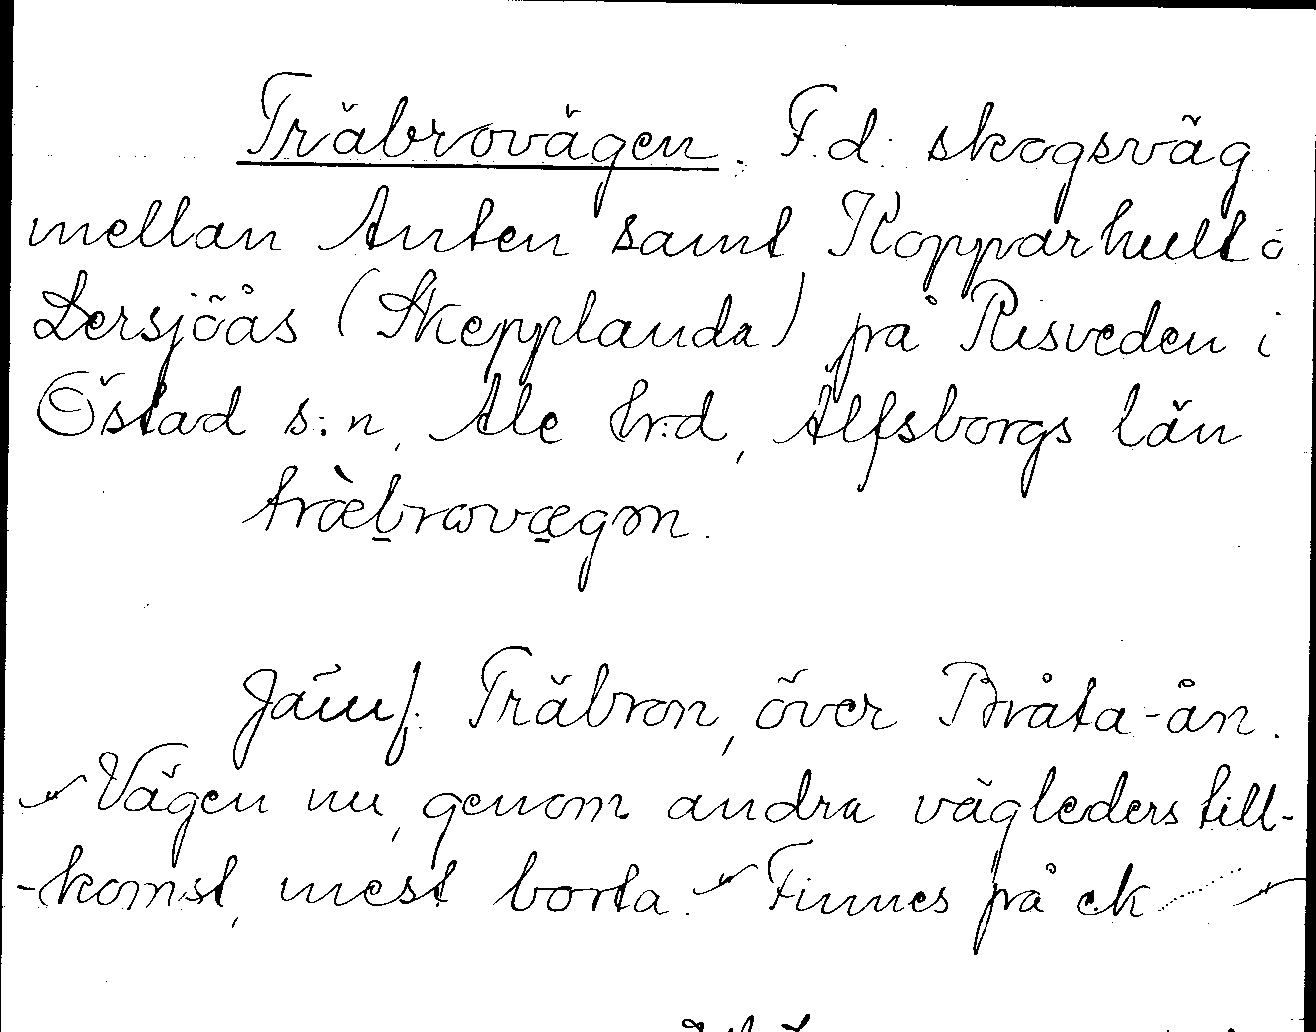 Träbrovägen. F.d. skogsväg
mellan Anten samt Kopparhult o
Dersjöås (Skepplanda) på Risveden i
Östad s:n, Ale hrd, Älfsborgs län
tràebrovægen.
Jämf. Träbron, över Bråta-ån.
Vägen nu, genom andra vägleders till-
-komst, mest borta. Finnes på ek